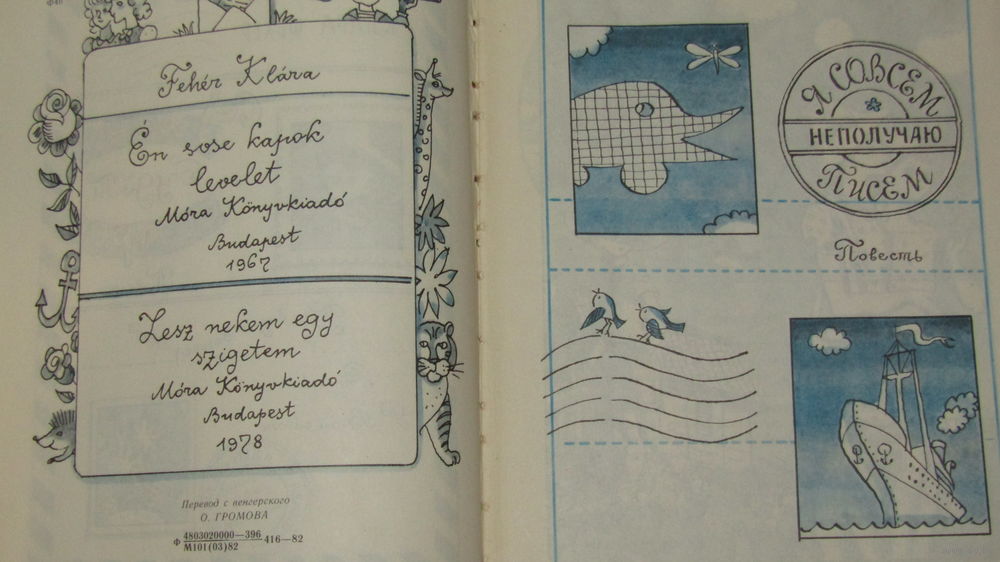 Fehér Klára
Én sose kapok
levelet
Móra Könyvkiadó
Budapest
1967
Lesz nekem egy
szigetem
Móra Könyvkiadó
Budapest
1978
Перевод с венгерского
О. ГРОМОВА
Ф 4803020000—396
М101(03)82
416—82
Я СОВСЕМ
НЕ ПОЛУЧАЮ
ПИСЕМ
Повесть